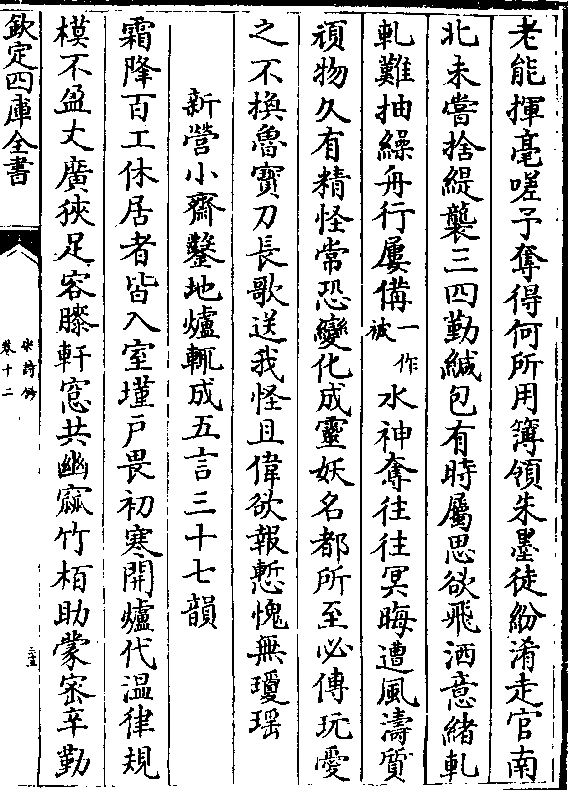 老能揮毫嗟予奪得何所用簿領朱墨徒紛淆走官南
北未嘗捨緹襲三四勤緘包有時屬思欲飛洒意緒軋
軋難抽繰舟行屢備一作被水神奪往往冥晦遭風濤質
頑物久有精怪常恐變化成靈妖名都所至必傳玩愛
之不換魯寶刀長歌送我怪且偉欲報慙愧無瓊瑶
新營小齋鑿地爐輒成五言三十七韻
霜降百工休居者皆入室墐戶畏初寒開爐代温律規
模不盈丈廣狹足容膝軒窓共幽窳竹栢助蒙宻辛勤
欽定四庫全書
宋詩鈔
卷十二